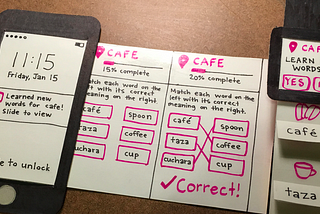 11:15
Friday, Jan 15
Learned new
words for cafe!
Slide to view
e to unlock
CAFE
15% complete
Match each word on the
left with its correct
meaning on the right.
café
spoon
taza
coffee
cuchara
cup
CAFE
20% complete
Match each word on the
left with its correct
meaning on the right.
café
spoon
taza
coffee
cuchara
cup
✓Correct!
CAF
LEARN
WORDS
YES
café
taza